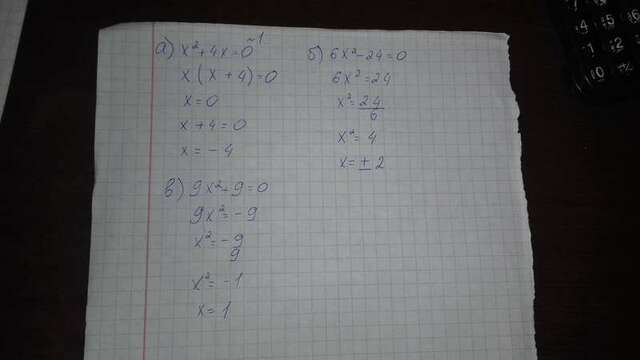 ~1
а) x²+4x=0
x(x+4)=0
x=0
x+4=0
x=-4
б) 6x²-24=0
6x²=24
x²=24/6
x²=4
x=±2
в) 9x²+9=0
9x²=-9
x²=-9/9
x²=-1
x=1